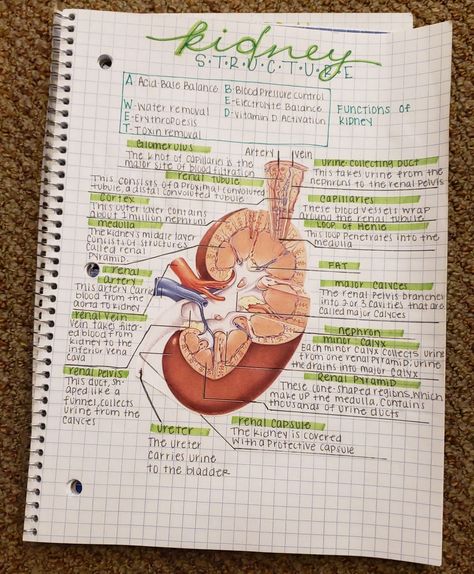 kidney
S·T·R·U·C·T·U·R·E
A: Acid-Base Balance
W-Water removal
E-Erythropoesis
T-Toxin removal
B-Blood Pressure control
E-Electrolyte Balance
D-Vitamin D. Activation
Functions of
kidney
Glomerulus
The knot of capillaries is the
major site of blood filtration
renal Tubule
This consists of a Proximal convoluted
tubule, a distal convoluted tubule
Cortex
This outer layer contains
about 1 million nephrons
medulla
The kidneys middle layer
consists of structures
called renal
Pyramid
renal
artery
This artery carries
blood from the
aorta to kidney
Renal vein
vein take filter-
ed blood from
kidney to the
inferior vena
cava
renal pelvis
This duct, sh-
aped like a
funnel, collects
urine from the
calyces
Artery
Vein
urine collecting duct
This takes urine from the
nephrons to the renal Pelvis
capillaries
These blood vessels wrap
around the renal tubule
Loop of Henle
This loop penetrates into the
medulla
FAT
major calyces
The renal pelvis branches
into 2 or 3 cavities that are
called major calyces
nephron
minor calyx
Each minor calyx collects urine
from one renal pyramid. urine
the drains into major calyx
Renal Pyramid
These cone shaped regions, which
make up the medulla, contains
thousands of urine ducts
renal capsule
The kidney is covered
with a protective capsule
ureter
The ureter
carries urine
to the bladder